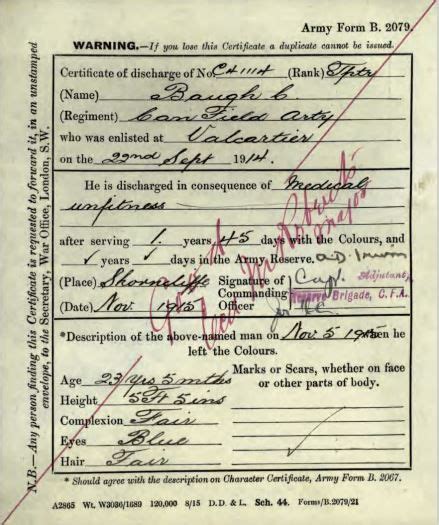 Army Form B. 2079.
WARNING.—If you lose this Certificate a duplicate cannot be issued.
Certificate of discharge of No. C41114 (Rank) Tptr
(Name) Baugh C
(Regiment) Can Field Arty
who was enlisted at Valcartier
on the 22nd Sept 1914.
He is discharged in consequence of Medical
unfitness
after serving 1. years 45 days with the Colours, and
✓ years ✓ days in the Army Reserve.
(Place) Shorncliffe Signature of Capt. Adjutant,
Commanding Reserve Brigade, C.F.A.
(Date) Nov. 1915 Officer
Major
*Description of the above-named man on Nov. 5 1915 when he
left the Colours.
Age 23 yrs 5 mths
Marks or Scars, whether on face
or other parts of body.
Height 5 Ft 5 ins
Complexion Fair
Eyes Blue
Hair Fair
* Should agree with the description on Character Certificate, Army Form B. 2067.
A2865 Wt. W3036/1689 120,000 8/15 D.D. & L. Sch. 44. Forms/B.2079/21
N.B.—Any person finding this Certificate is requested to forward it, in an unstamped
envelope, to the Secretary, War Office, London, S.W.